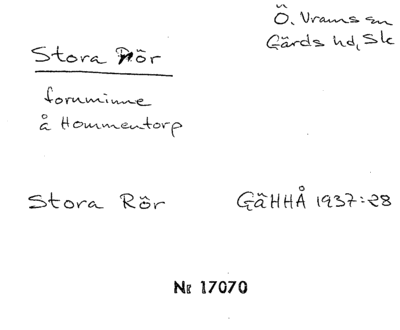 Stora Rör
Ö. Vrams sn
Gärds hd, Sk
fornminne
å Hommentorp
Stora Rör
GäHHÅ 1937:28
Nr 17070